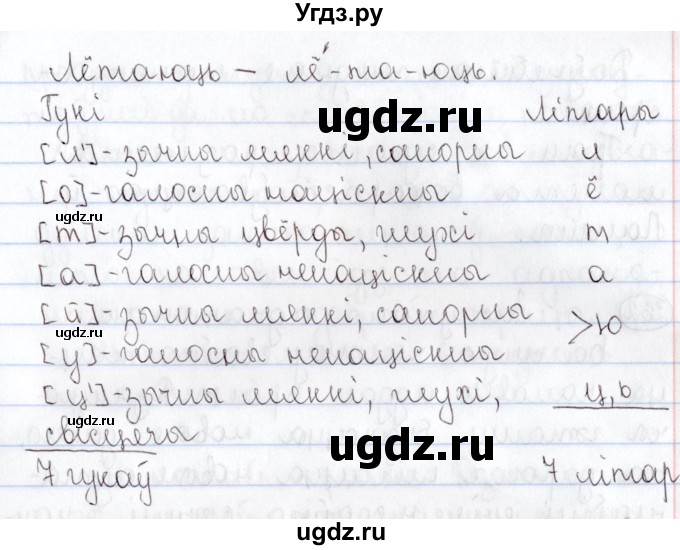 Угдз.ру
Лётаюць – лё́-та-юць.
Гукі Літары
[л']-зычны мяккі, санорны л
[о]-галосны націскны ё
[т]-зычны цвёрды, глухі т
[а]-галосны ненаціскны а
[й]-зычны мяккі, санорны
>ю
[у]-галосны ненаціскны
[ц']-зычны мяккі, глухі, ц,ь
свісцячы
7 гукаў 7 літар
ugdz.ru
ugdz.ru
ugdz.ru
ugdz.ru
ugdz.ru
ugdz.ru
ugdz.ru